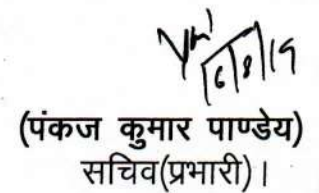 6/8/19
(पंकज कुमार पाण्डेय)
सचिव(प्रभारी)।